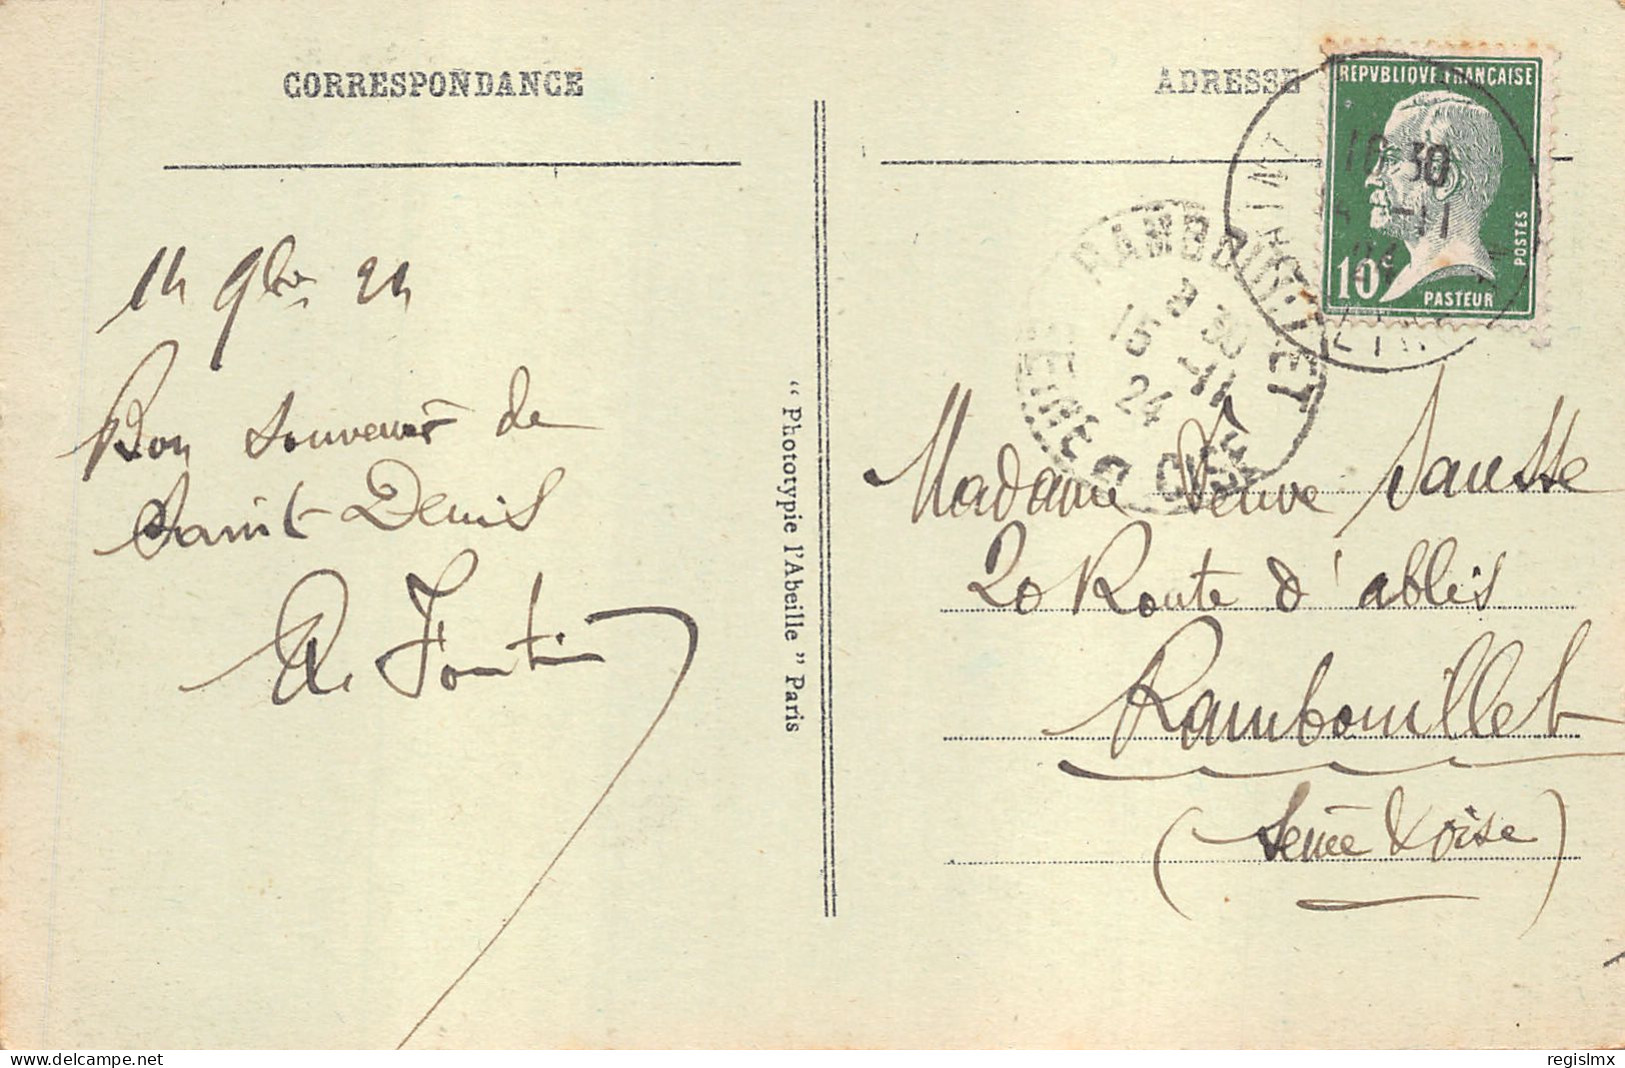 CORRESPONDANCE
14 9bre 24
Bon souvenir de
Saint Denis
A. Fontin
" Phototypie l'Abeille " Paris
ADRESSE
REPVBLIQVE FRANÇAISE
10c
POSTES
PASTEUR
30
-11
RAMBOUILLET
8 30
15 -11
24
SEINE & OISE
Madame Veuve Sausse
20 Route d'ablis
Rambouillet
(Seine & Oise)
delcampe.net
regislmx